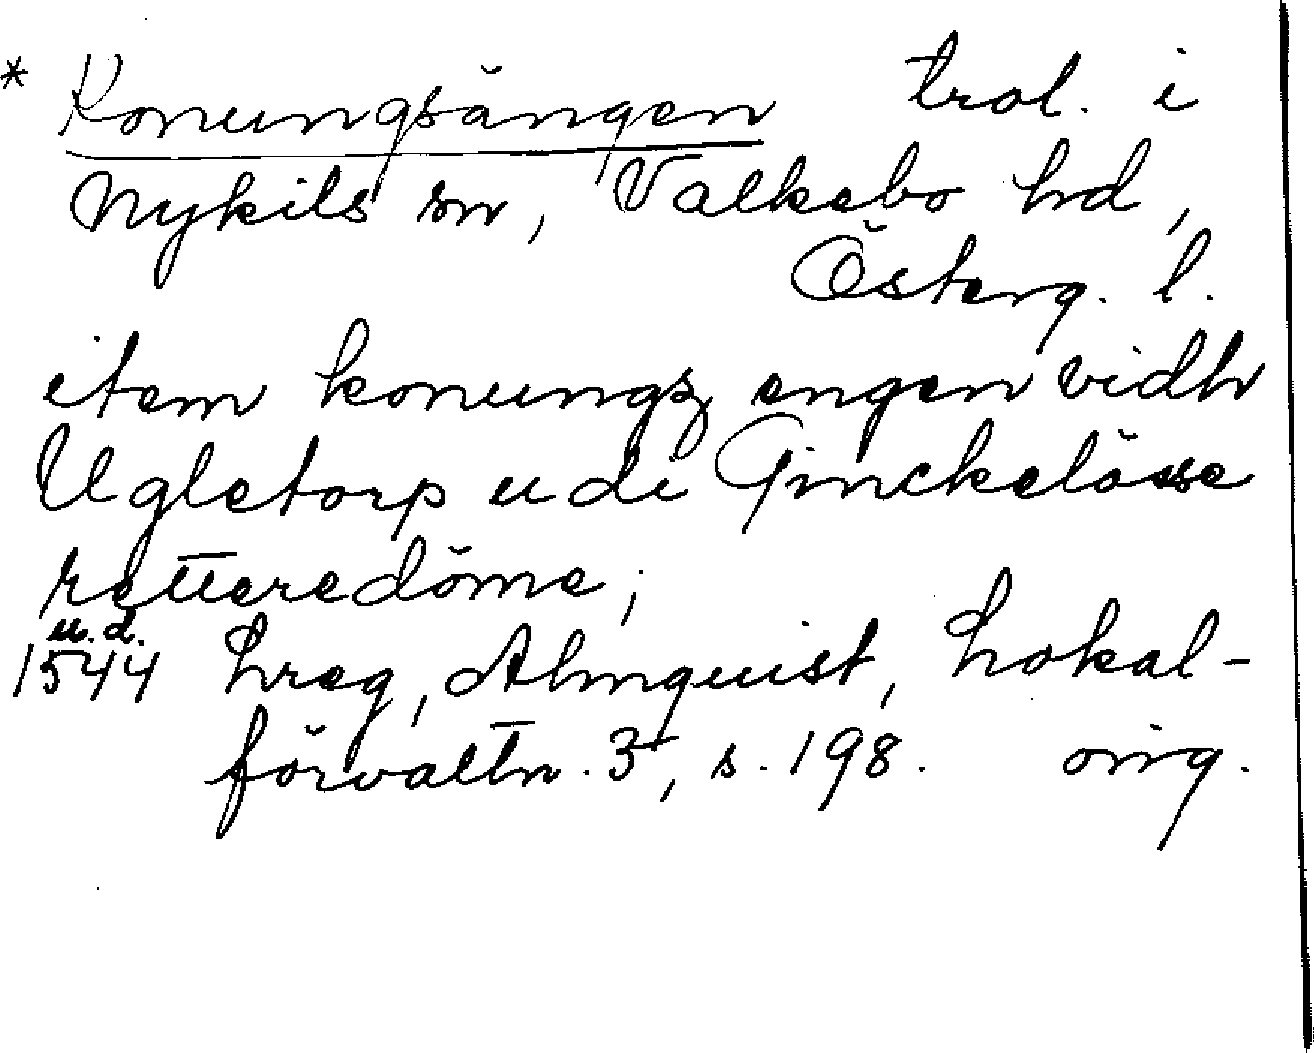 * Konungsängen trol. i
Nykils sn, Valkebo hd,
Österg. l.
item konungz engen vidh
Ugletorp udi Ginckelösse
retteredöme;
u.d.
1544 Lreg, Almquist, Lokal-
förvaltn. 3, s. 198. orig.